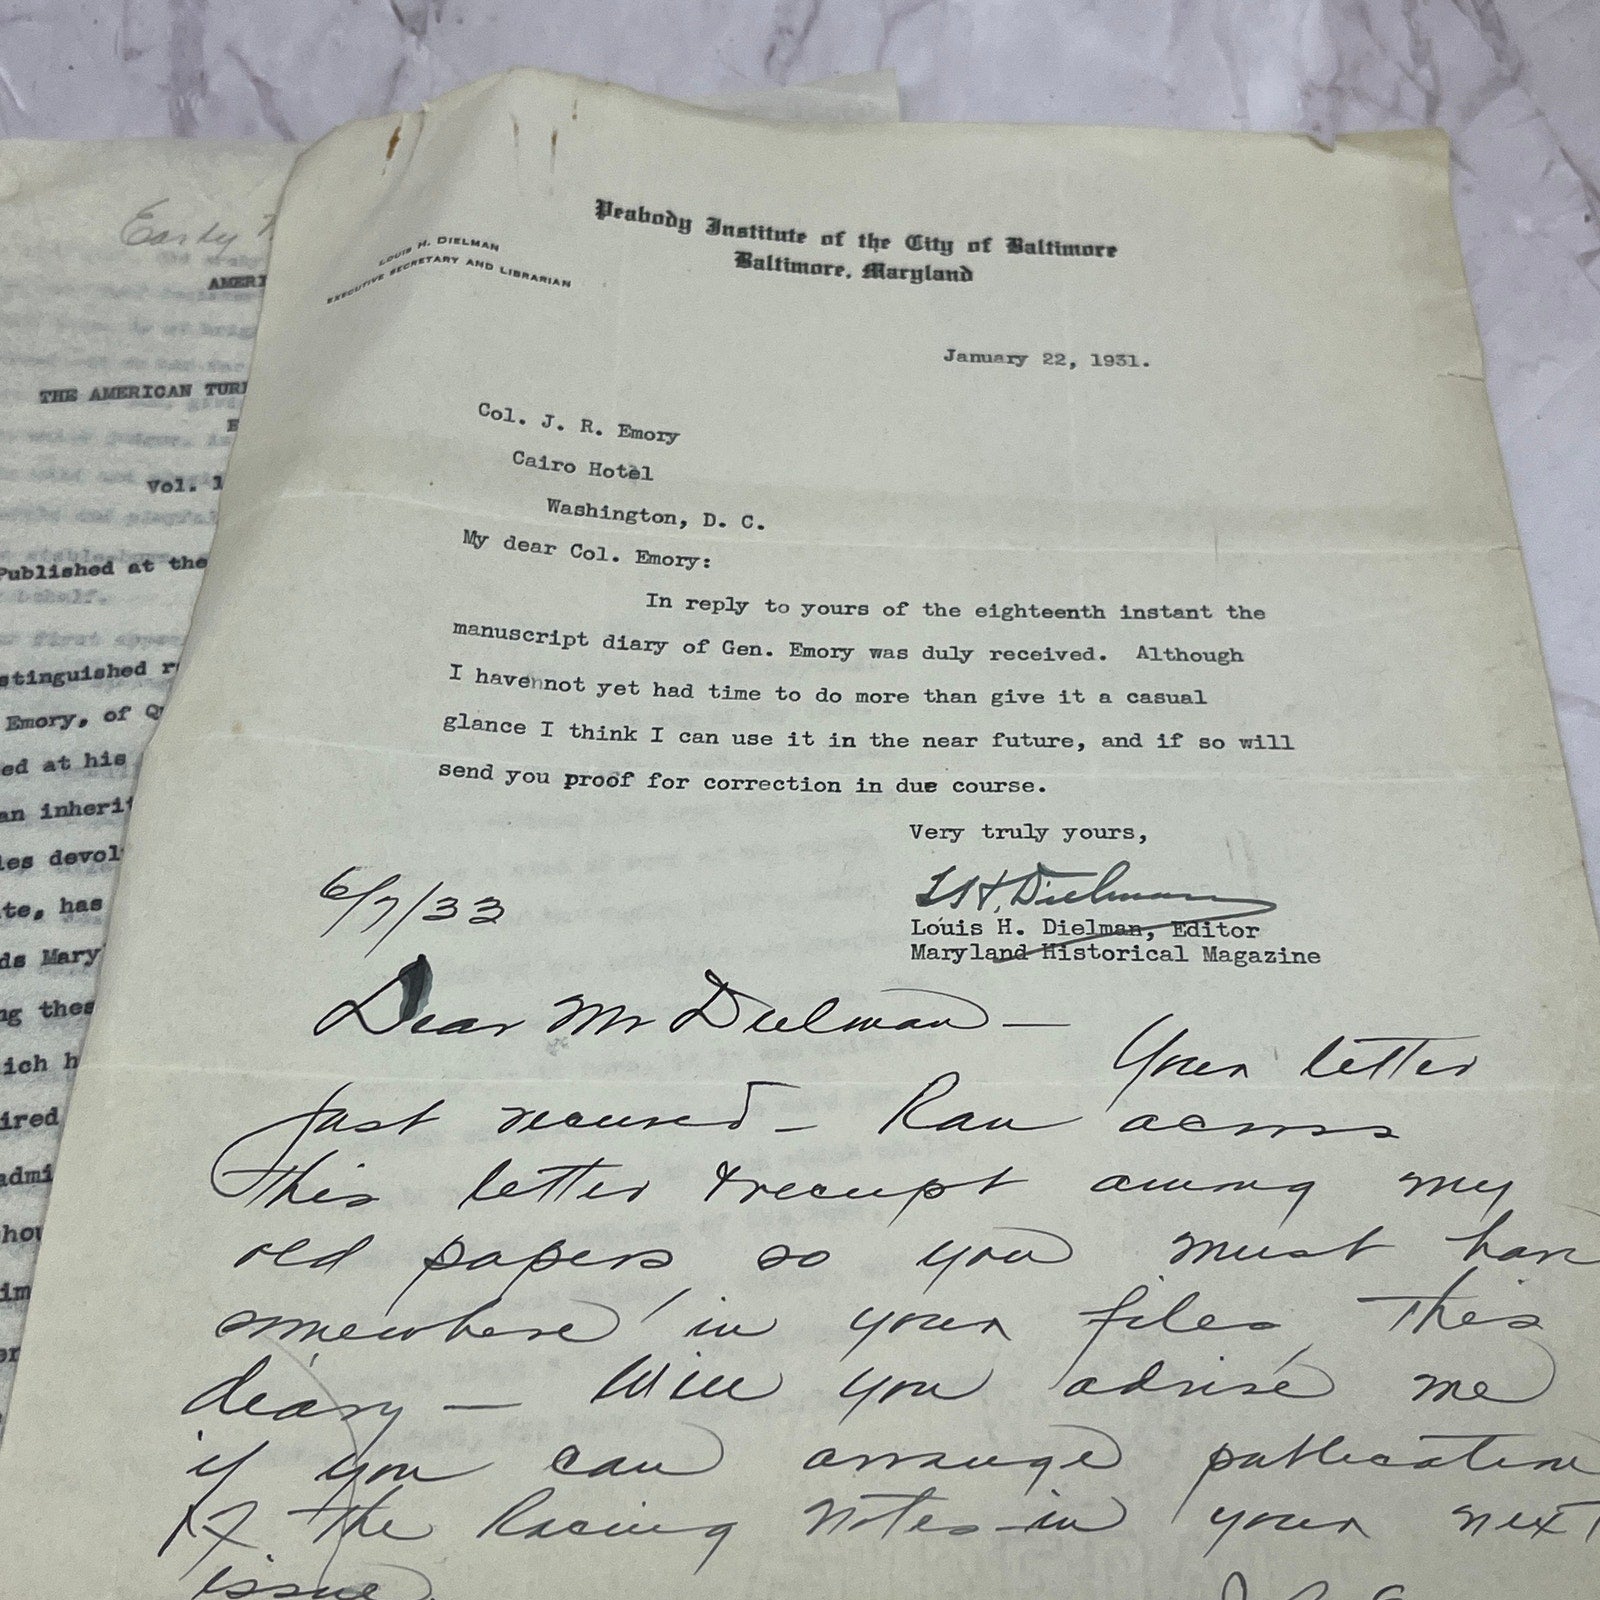 Early
AMERI
THE AMERICAN TURF
Vol. 1
Published at the
behalf.
stinguished r
Emory, of Q
ed at his
an inherit
les devol
te, has
ds Mary
ng thes
ich h
ired
admi
hou
im
er
Peabody Institute of the City of Baltimore
Baltimore, Maryland
LOUIS H. DIELMAN
EXECUTIVE SECRETARY AND LIBRARIAN
January 22, 1931.
Col. J. R. Emory
Cairo Hotel
Washington, D. C.
My dear Col. Emory:
In reply to yours of the eighteenth instant the
manuscript diary of Gen. Emory was duly received. Although
I have not yet had time to do more than give it a casual
glance I think I can use it in the near future, and if so will
send you proof for correction in due course.
Very truly yours,
L H. Dielman
Louis H. Dielman, Editor
Maryland Historical Magazine
6/7/33
Dear Mr Dielman —
Your letter
just received — Ran across
this letter & receipt among my
old papers so you must have
somewhere in your files, this
diary — Will you advise me
if you can arrange publication
of the Racing Notes in your next
issue